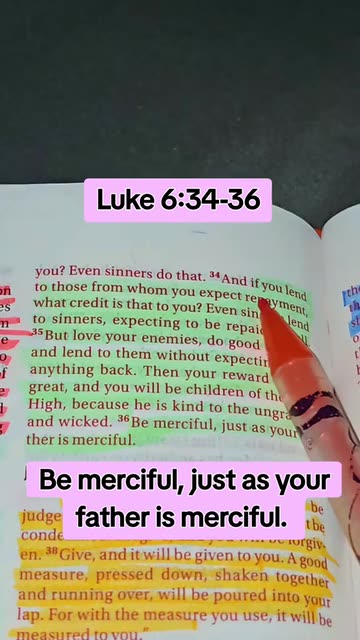 Luke 6:34-36
you? Even sinners do that. 34And if you lend
to those from whom you expect repayment,
what credit is that to you? Even sin lend
to sinners, expecting to be repai
35But love your enemies, do good
and lend to them without expectin
anything back. Then your reward
great, and you will be children of the
High, because he is kind to the ungra
and wicked. 36Be merciful, just as your
ther is merciful.
Be merciful, just as your
father is merciful.
be
judge
be
conde
en. 38Give, and it will be given to you. A good
measure, pressed down, shaken together
and running over, will be poured into your
lap. For with the measure you use, it will be
measured to you."